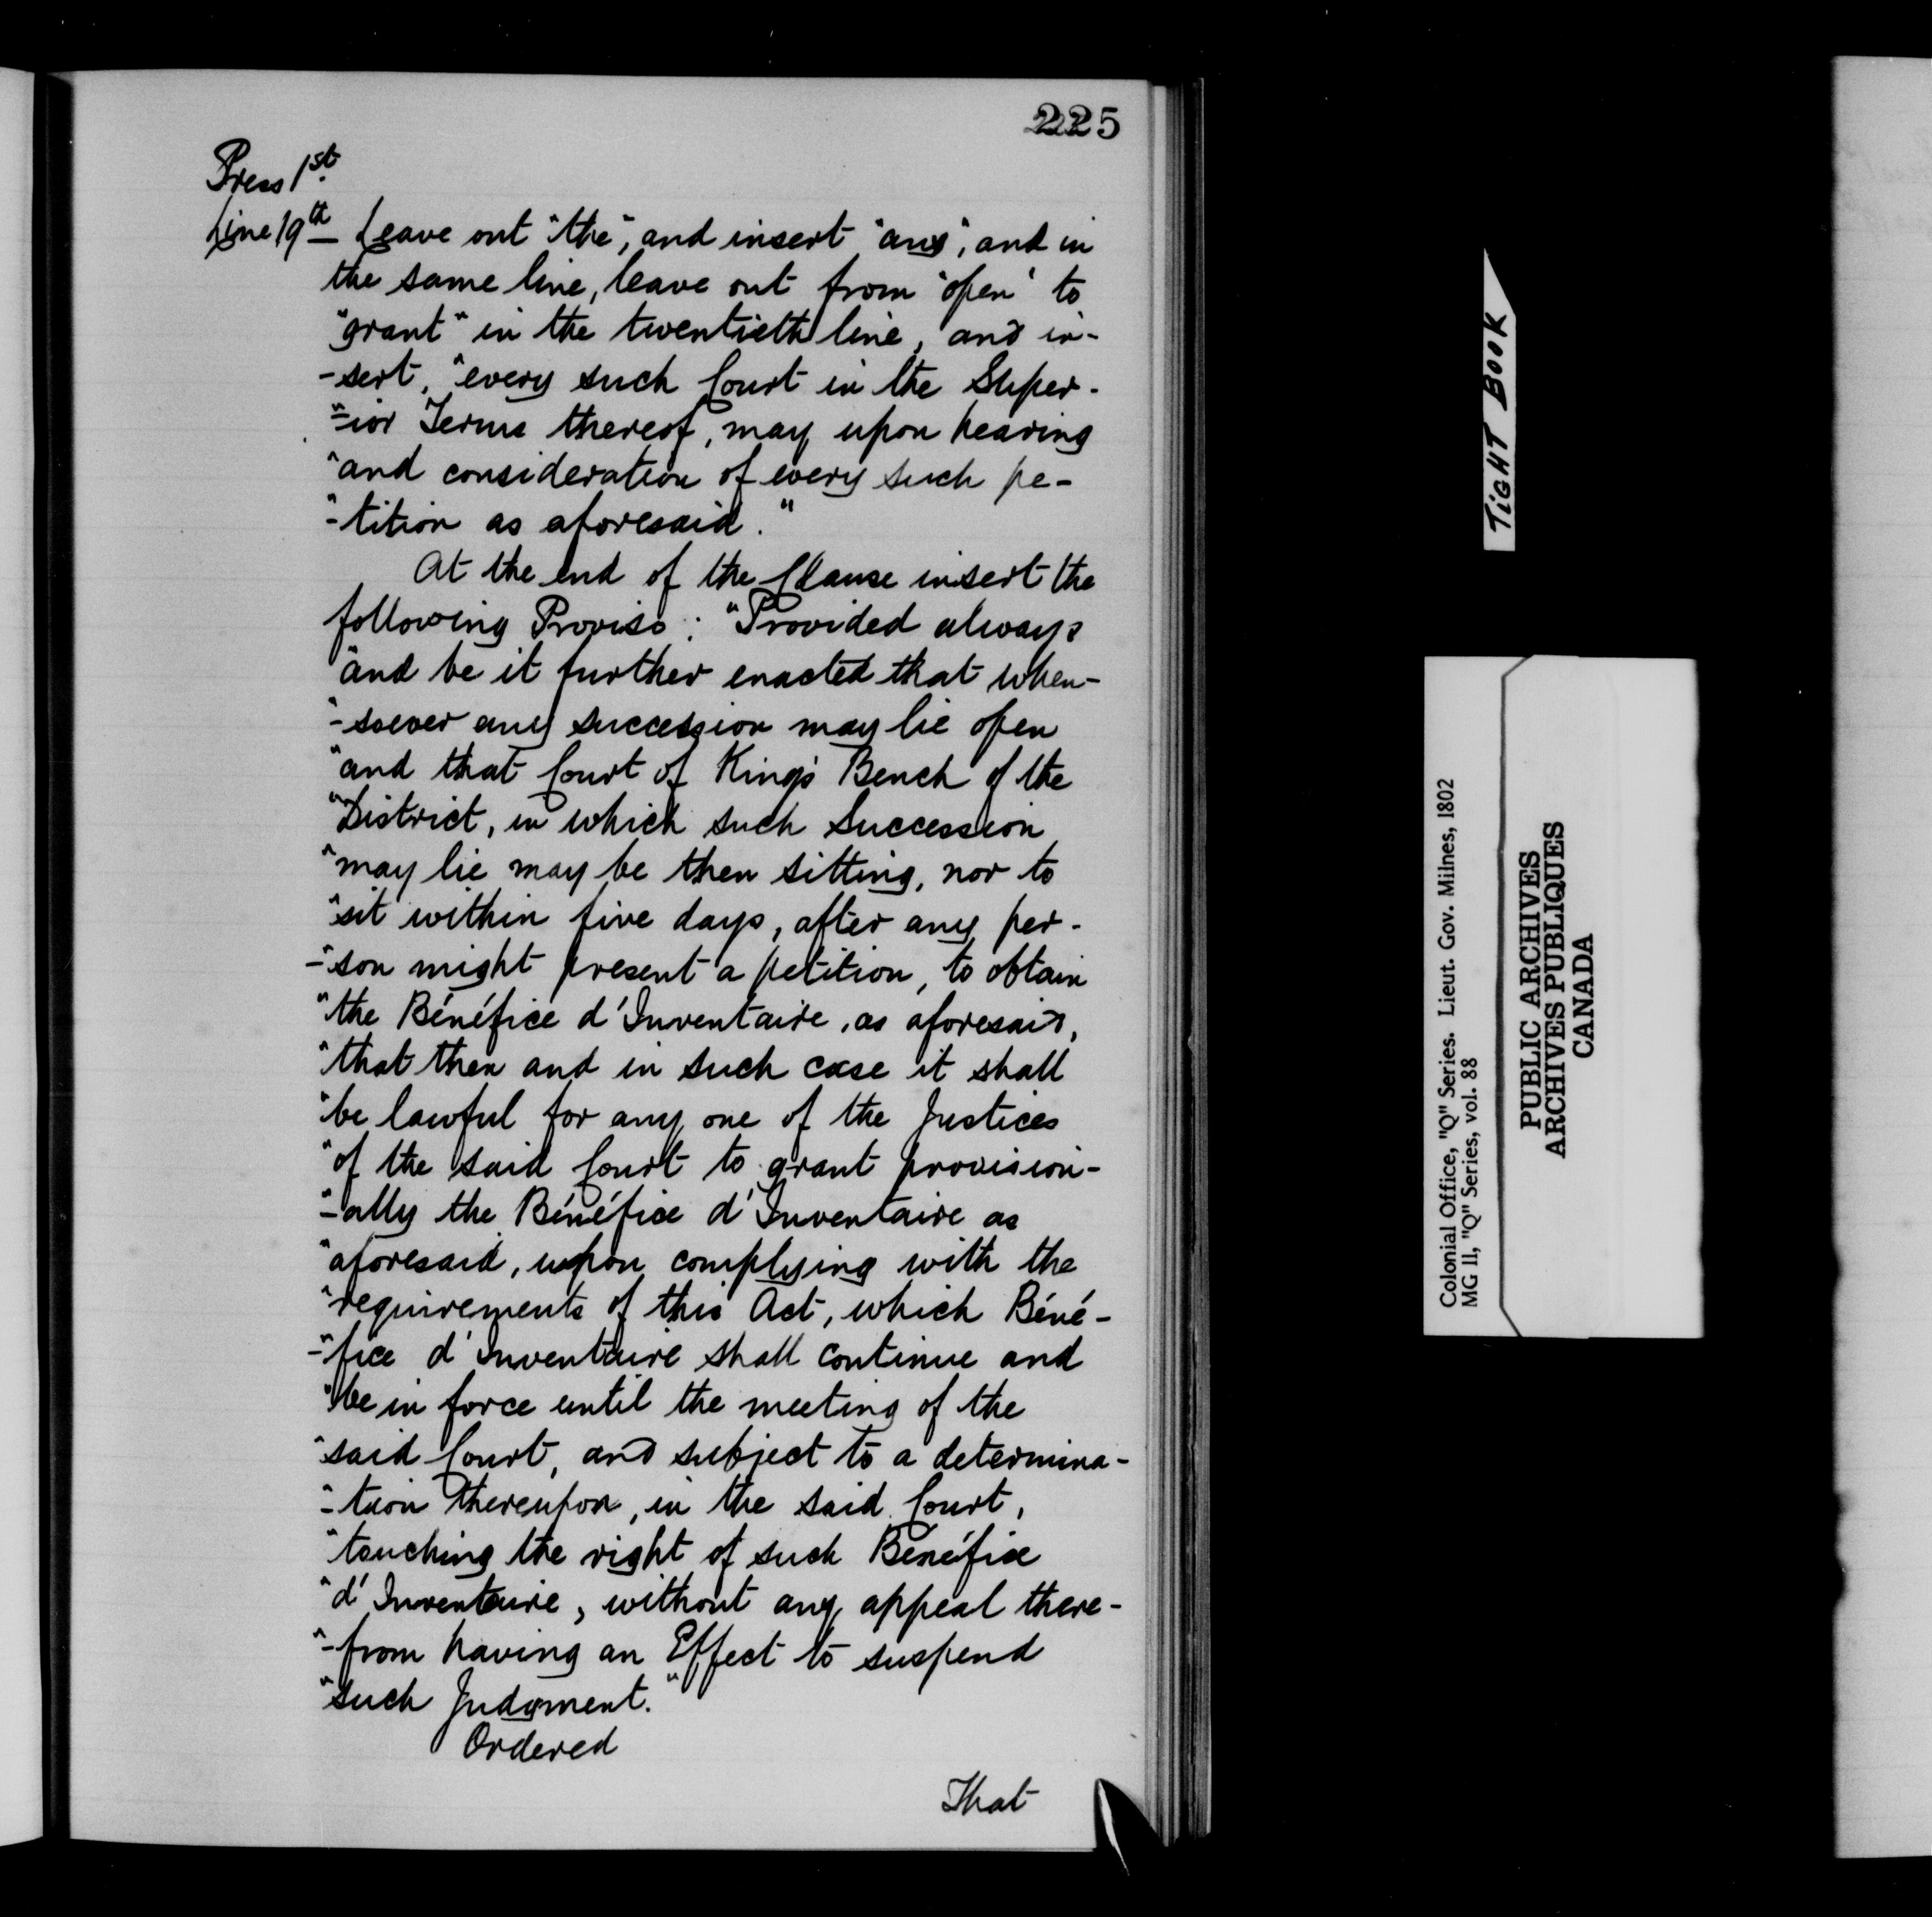 225
Press 1st
Line 19th Leave out "the", and insert "any", and in
the same line, leave out from "open" to
"grant" in the twentieth line, and in-
-sert, "every such Court in the Super-
"-ior Terms thereof, may upon hearing
"and consideration of every such pe-
"-tition as aforesaid."
At the end of the Clause insert the
following Proviso: "Provided always
"and be it further enacted that when-
"-soever any succession may lie open
"and that Court of King's Bench of the
"District, in which such Succession
"may lie may be then sitting, nor to
"sit within five days, after any per-
-"son might present a petition, to obtain
"the Bénéfice d'Inventaire, as aforesaid,
"that then and in such case it shall
"be lawful for any one of the Justices
"of the said Court to grant provision-
"-ally the Bénéfice d'Inventaire as
"aforesaid, upon complying with the
"requirements of this Act, which Béné-
-"fice d'Inventaire shall continue and
"be in force until the meeting of the
"said Court, and subject to a determina-
"-tion thereupon, in the said Court,
"touching the right of such Bénéfice
"d'Inventaire, without any appeal there-
"-from having an Effect to suspend
"such Judgment."
Ordered
That
TIGHT BOOK
Colonial Office, "Q" Series. Lieut. Gov. Milnes, 1802
MG 11, "Q" Series, vol. 88
PUBLIC ARCHIVES
ARCHIVES PUBLIQUES
CANADA